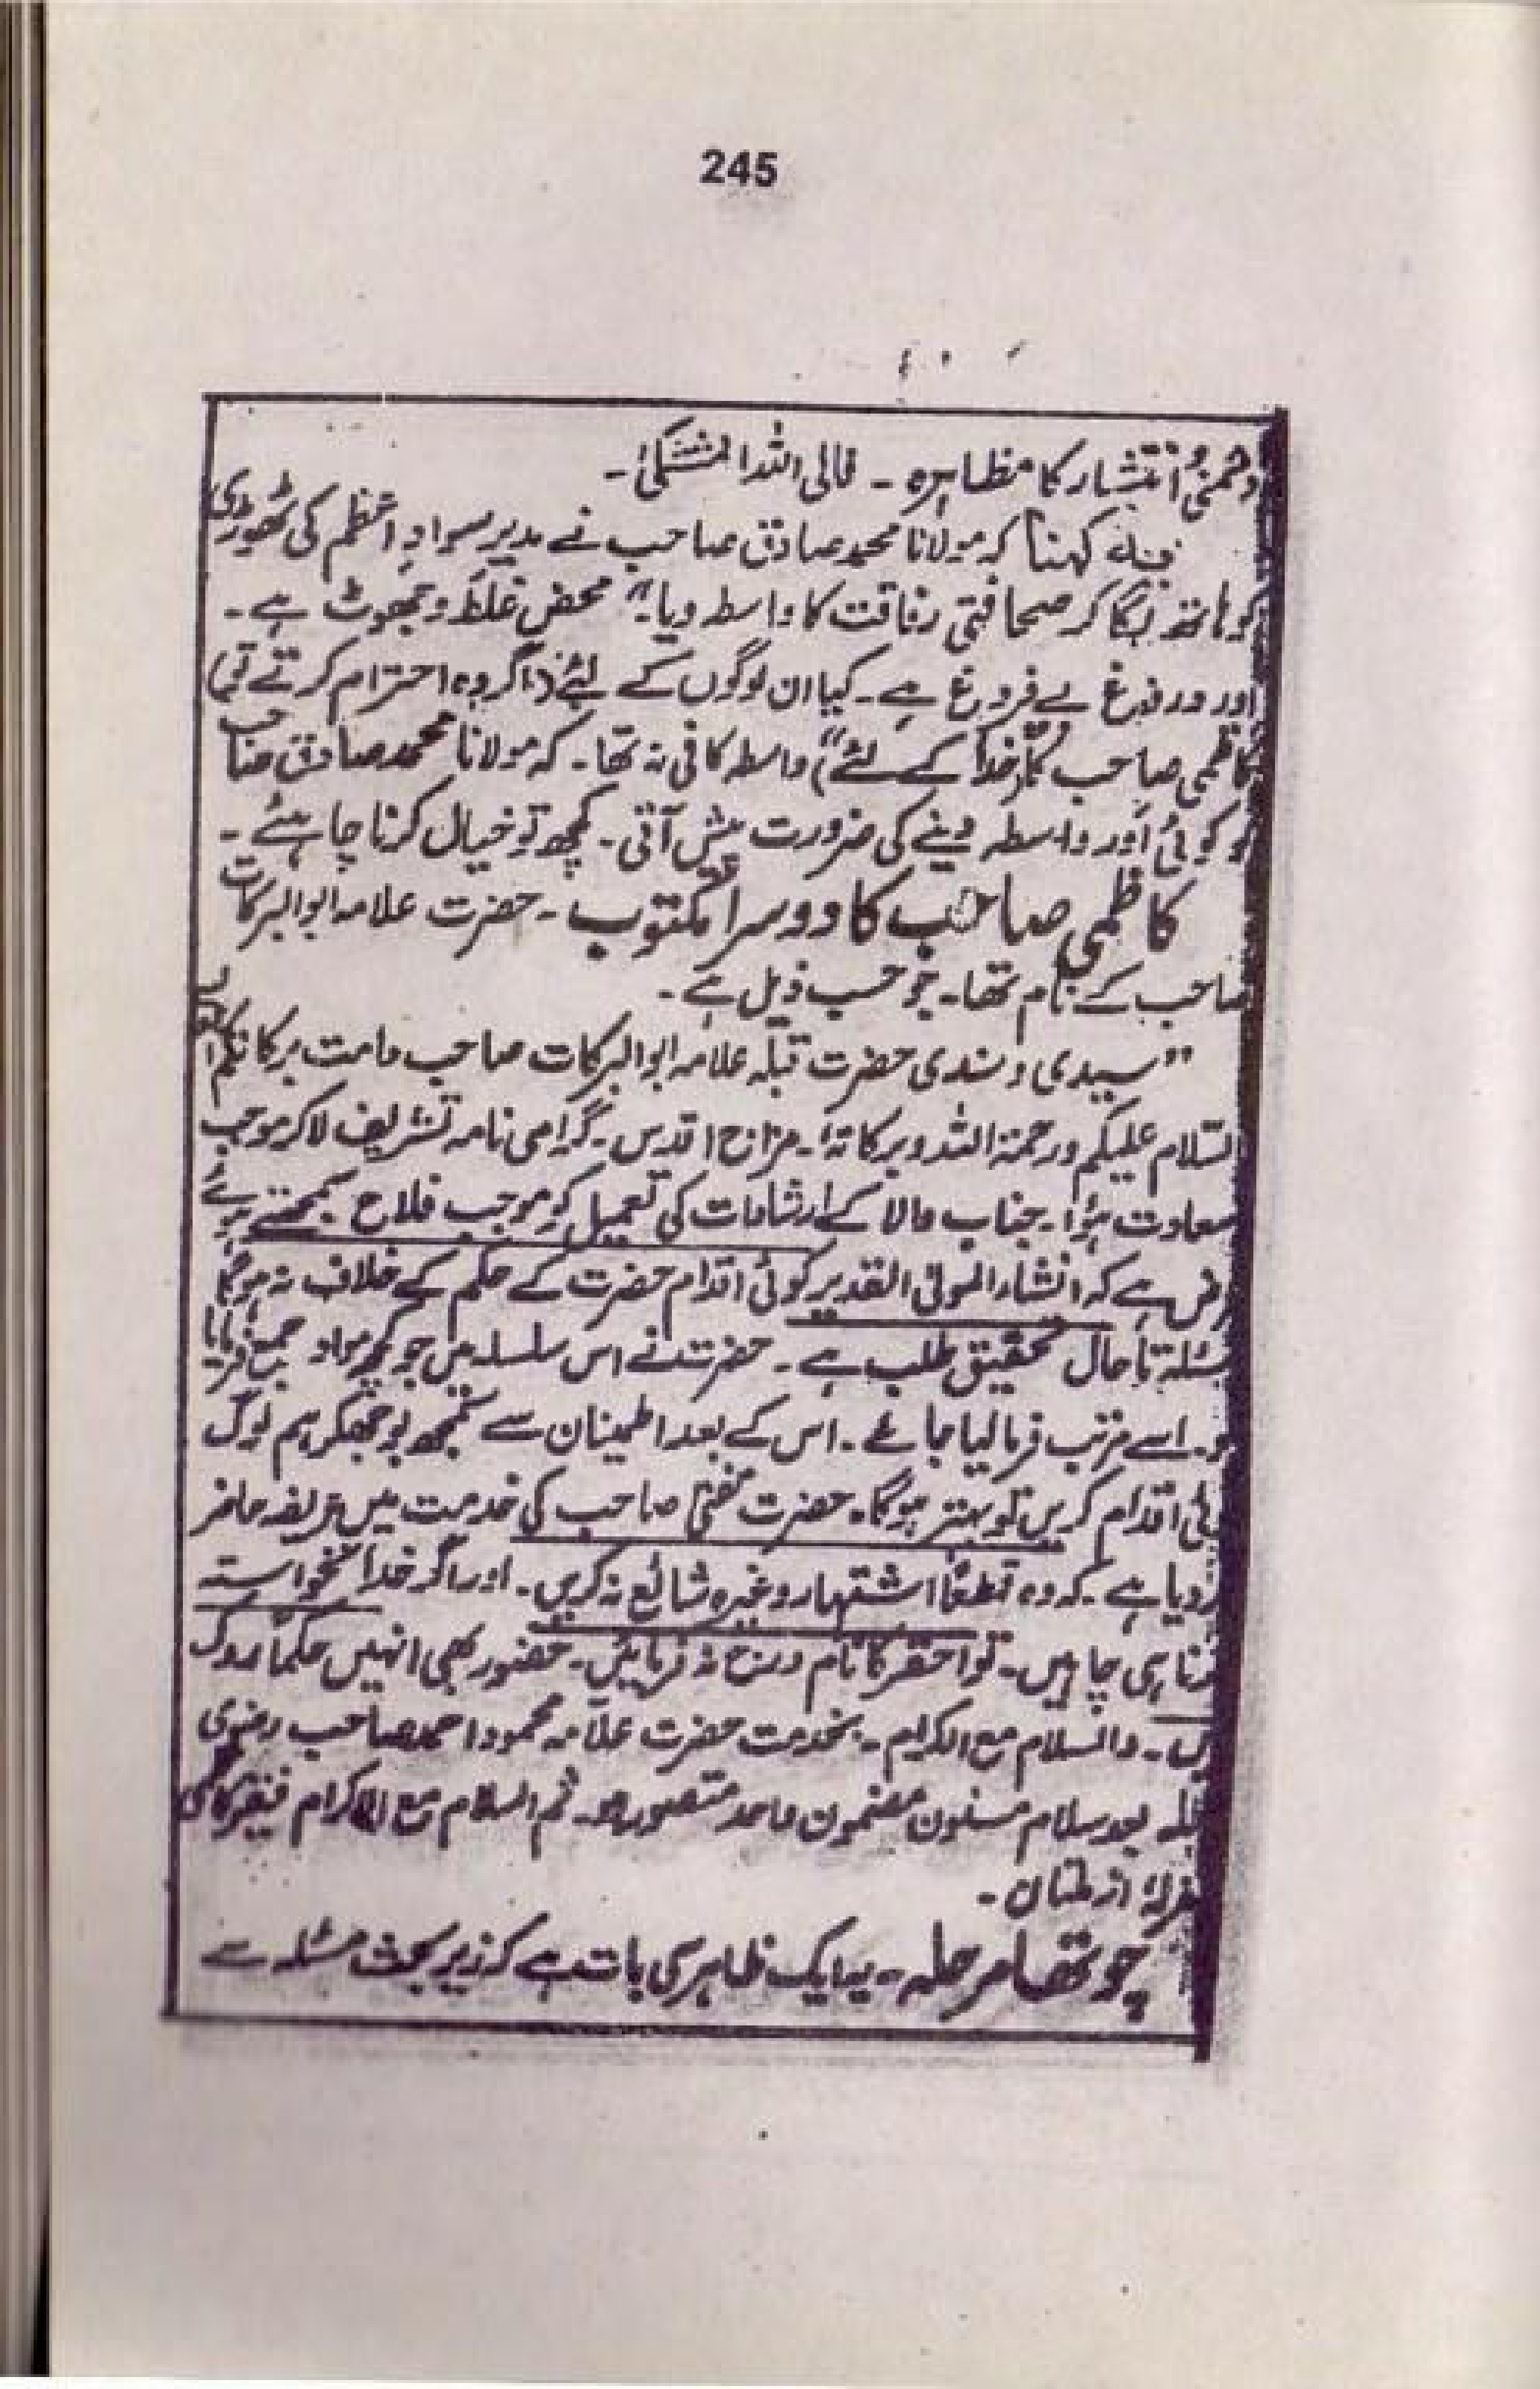 245
انتشار کا مظاہرہ ۔ فالی اللہ المشتکیٰ ۔
کہنا کہ مولانا محمد صادق صاحب نے مدیر سوادِ اعظم کی ٹھوڑی
کو ہاتھ لگا کر صحافتی رفاقت کا واسطہ دیا۔" محض غلط و جھوٹ ہے ۔
اور دروغ بے فروغ ہے ۔ کیا ان لوگوں کے لئے (اگر وہ احترام کرتے تھے)
کاظمی صاحب کا (خدا کے لئے") واسطہ کافی نہ تھا ۔ کہ مولانا محمد صادق صاحب
کو کوئی اور واسطہ دینے کی ضرورت پیش آتی ۔ کچھ تو خیال کرنا چاہئے ۔
کاظمی صاحب کا دوسرا مکتوب ۔ حضرت علامہ ابوالبرکات
صاحب کے نام تھا ۔ جو حسب ذیل ہے ۔
"سیدی و سندی حضرت قبلہ علامہ ابوالبرکات صاحب دامت برکاتکم
السلام علیکم ورحمۃ اللہ وبرکاتہٗ ۔ مزاج اقدس ۔ گرامی نامہ تشریف لاکر موجب
سعادت ہوُا ۔ جناب والا کے ارشادات کی تعمیل کو موجب فلاح سمجھتے ہوئے
عرض ہے کہ انشاء المولی القدیر کوئی اقدام حضرت کے حکم کے خلاف نہ ہوگا
مسئلہ تا حال تحقیق طلب ہے ۔ حضرت نے اس سلسلہ میں جو کچھ مواد جمع فرمایا
ہو ۔ اسے مرتب فرما لیا جائے ۔ اس کے بعد اطمینان سے سمجھ بوجھکر ہم لوگ
کوئی اقدام کریں تو بہتر ہوگا ۔ حضرت مفتی صاحب کی خدمت میں عریضہ حاضر
کردیا ہے ۔ کہ وہ قطعًا اشتہار وغیرہ شائع نہ کریں ۔ اور اگر خدا نخواستہ
کرنا ہی چاہیں ۔ تو احقر کا نام درج نہ فرمائیں ۔ حضور بھی انہیں حکمًا روک
دیں ۔ والسلام مع الکرام ۔ بخدمت حضرت علامہ محمود احمد صاحب رضوی
قبلہ بعد سلام مسنون مضمون واحد متصور ہو ۔ ثم السلام مع الاکرام فقیر کاظمی
غفرلہٗ از ملتان ۔
چوتھا مرحلہ ۔ یہ ایک ظاہر سی بات ہے کہ زیر بحث مسئلہ سے